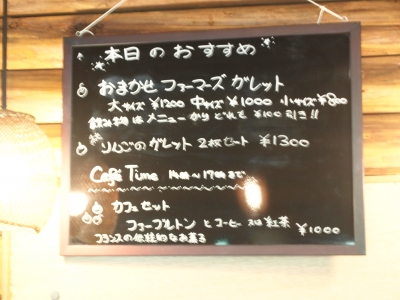 本日のおすすめ
おまかせファーマーズガレット
大サイズ ¥1200 中サイズ ¥1000 小サイズ ¥800
飲み物はメニューからどれでも ¥100引き!!
りんごのガレット 2枚セット ¥1300
Café Time 14時〜17時まで
カフェセット
ファーブルトン とコーヒー 又は 紅茶 ¥1000
フランスの伝統的なお菓子